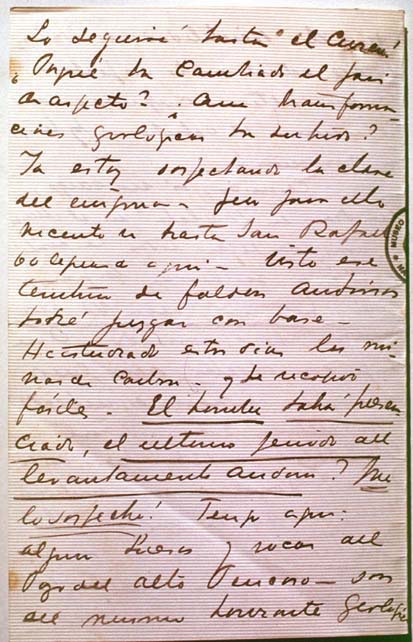 Lo seguiré hasta el Cureu
¿Porqué ha cambiado el pais
de aspecto? ¿Que transforma-
ciones geológicas ha sufrido?
Ya estoy sospechando la clave
del enigma - pero para ello
necesito ir hasta San Rafael
o a aqui - Visto ese
de faldeos Andinos
podré juzgar con base -
He estudiado estos dias las mi-
nas de carbon - y he recojido
fósiles - El hombre habrá presen-
ciado, el ultimo periodo del
levantamiento andino? Me
lo sospecho! Tengo aqui
algun hueso y rocas del
del alto - son
del mismo horizonte geologico
MUSEO